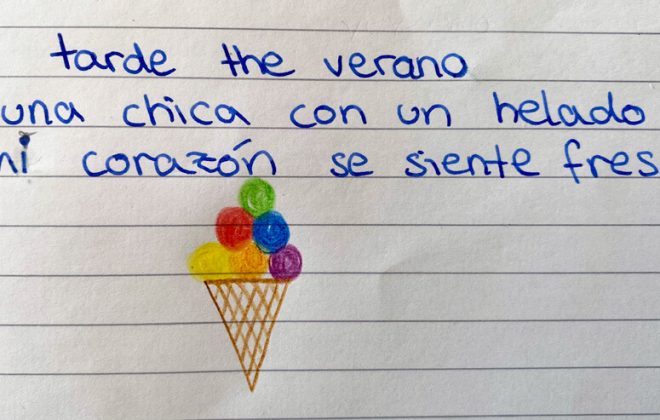 tarde the verano
una chica con un helado
mi corazón se siente fres